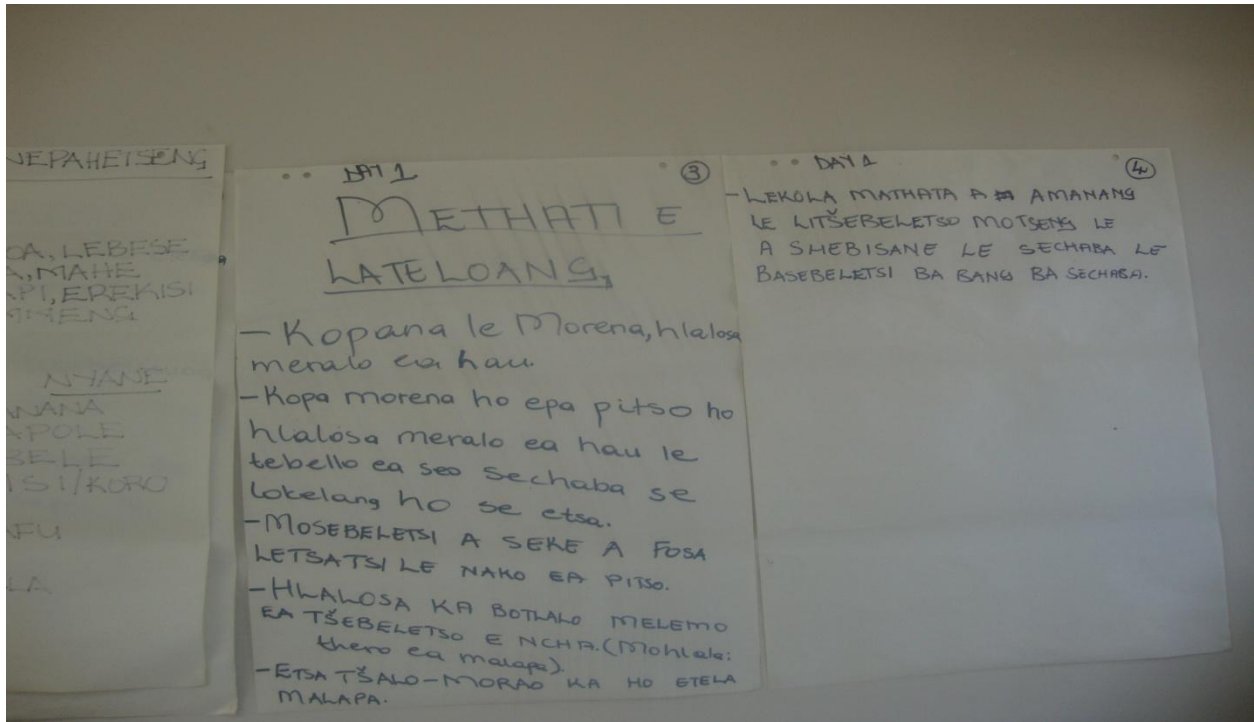 NEPAHETSENG
OA, LEBESE
A, MAHE
API, EREKISI
NYANE
ANANA
APOLE
BELE
TSI/KORO
AFU
LA
DAY 1
3
METHATI E
LATELOANG,
- Kopana le Morena, hlalosa
meralo ea hau.
- Kopa morena ho epa pitso ho
hlalosa meralo ea hau le
tebello ea seo sechaba se
lokelang ho se etsa.
- MOSEBELETSI A SEKE A FOSA
LETSATSI LE NAKO EA PITSO.
- HLALOSA KA BOTLALO MELEMO
EA TŠEBELETSO E NCHA. (Mohlala:
thero ea malapa).
- ETSA TŠALO-MORAO KA HO ETELA
MALAPA.
DAY 1
4
- LEKOLA MATHATA A AMANANG
LE LITŠEBELETSO MOTSENG LE
A SHEBISANE LE SECHABA LE
BASEBELETSI BA BANG BA SECHABA.